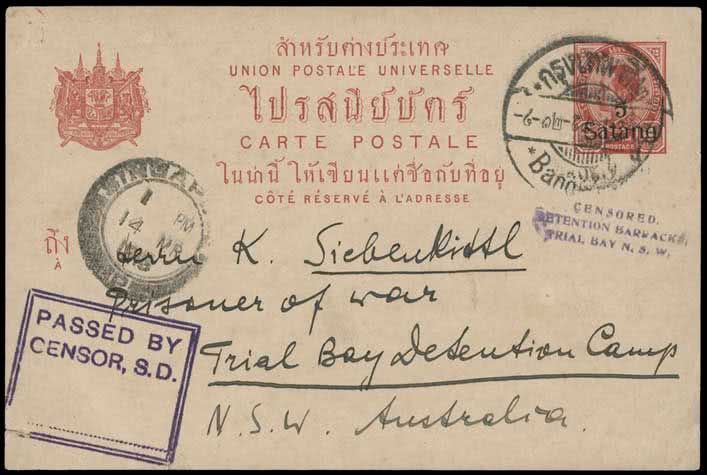 สำหรับต่างประเทศ
UNION POSTALE UNIVERSELLE
ไปรสนียบัตร์
CARTE POSTALE
ในน่านี้ ให้เขียนแต่ชื่อกับที่อยู่
CÔTÉ RÉSERVÉ À L'ADRESSE
5
Satang
POSTAGE
CENSORED.
DETENTION BARRACKS,
TRIAL BAY N. S. W.
1
PM
14
ถึง
A
Herrn K. Siebenkittl
Prisoner of war
Trial Bay Detention Camp
N.S.W. Australia.
PASSED BY
CENSOR, S.D.